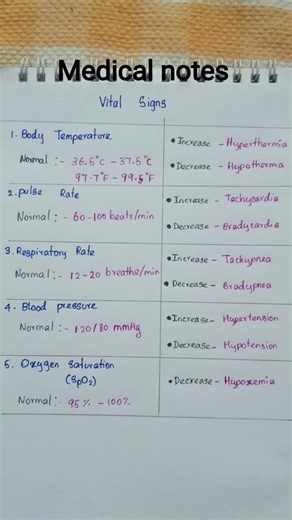 Medical notes
Vital Signs
1. Body Temperature
Normal :- 36.5°c - 37.5°c
97.7°F - 99.5°F
• Increase - Hyperthermia
• Decrease - Hypothermia
2. pulse Rate
Normal :- 60-100 beats/min
• Increase - Tachycardia
• Decrease - Bradycardia
3. Respiratory Rate
Normal :- 12-20 breaths/min
• Increase - Tachypnea
• Decrease - Bradypnea
4. Blood pressure
Normal :- 120/80 mmHg
• Increase - Hypertension
• Decrease - Hypotension
5. Oxygen Saturation
(SpO2)
Normal :- 95% - 100%
• Decrease - Hypoxemia